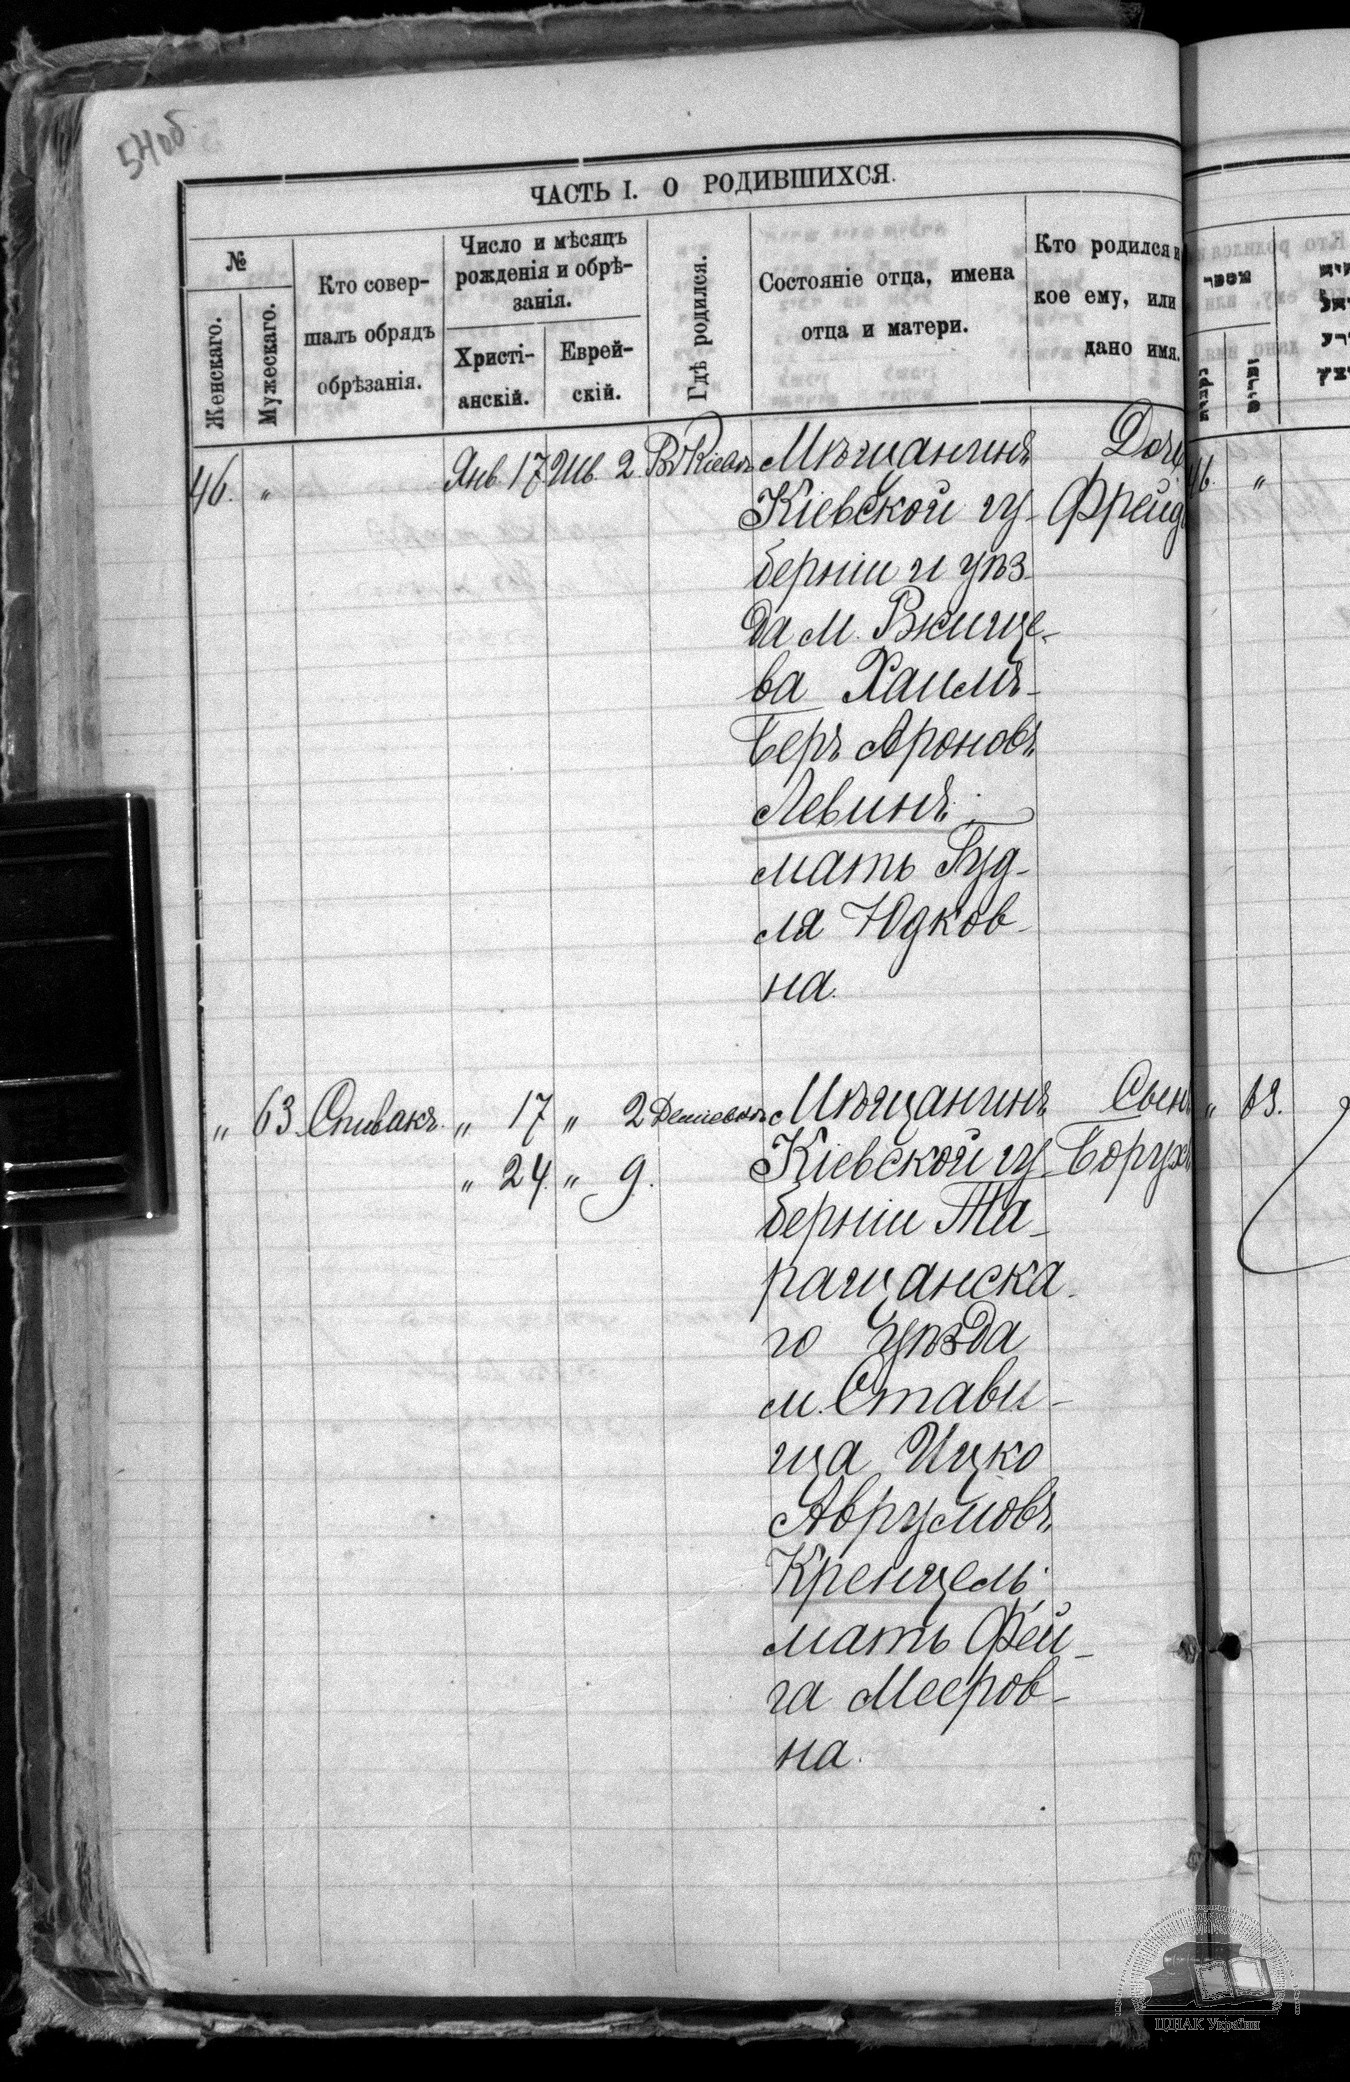 54об.
ЧАСТЬ I. О РОДИВШИХСЯ.
№
Женскаго.
Мужескаго.
Кто совер-
шалъ обрядъ
обрѣзанія.
Число и мѣсяцъ
рожденія и обрѣ-
занія.
Христі-
анскій.
Еврей-
скій.
Гдѣ родился.
Состояніе отца, имена
отца и матери.
Кто родился и
кое ему, или
дано имя.
46. „ Янв. 17 Шв. 2. Въ Кіевѣ
Мѣщанинъ
Кіевской гу-
берніи и уѣз-
да м. Ржище-
ва Хаимъ-
Беръ Ароновъ
Левинъ;
мать Гуд-
ля Юдков-
на.
Дочь
Фрейд
„ 63 Спивакъ. „ 17 „ 2 Демiевкѣ
„ 24. „ 9.
Мѣщанинъ
Кіевской гу-
берніи Та-
ращанска-
го уѣзда
м. Стави-
ща Ицко
Аврумовъ
Кренцель;
мать Фей-
га Мееров-
на.
Сынъ
Борухъ
46. „
„ 63.
ЦДІАК України